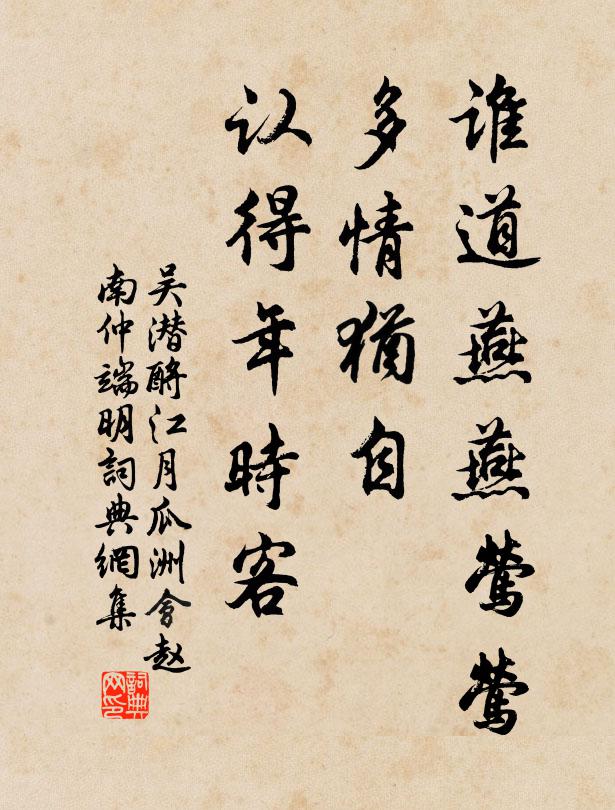 谁道燕燕莺莺
多情猶自
认得年時客
吴潜酹江月瓜洲會赵
南仲端明詞典網集
詞典
网印